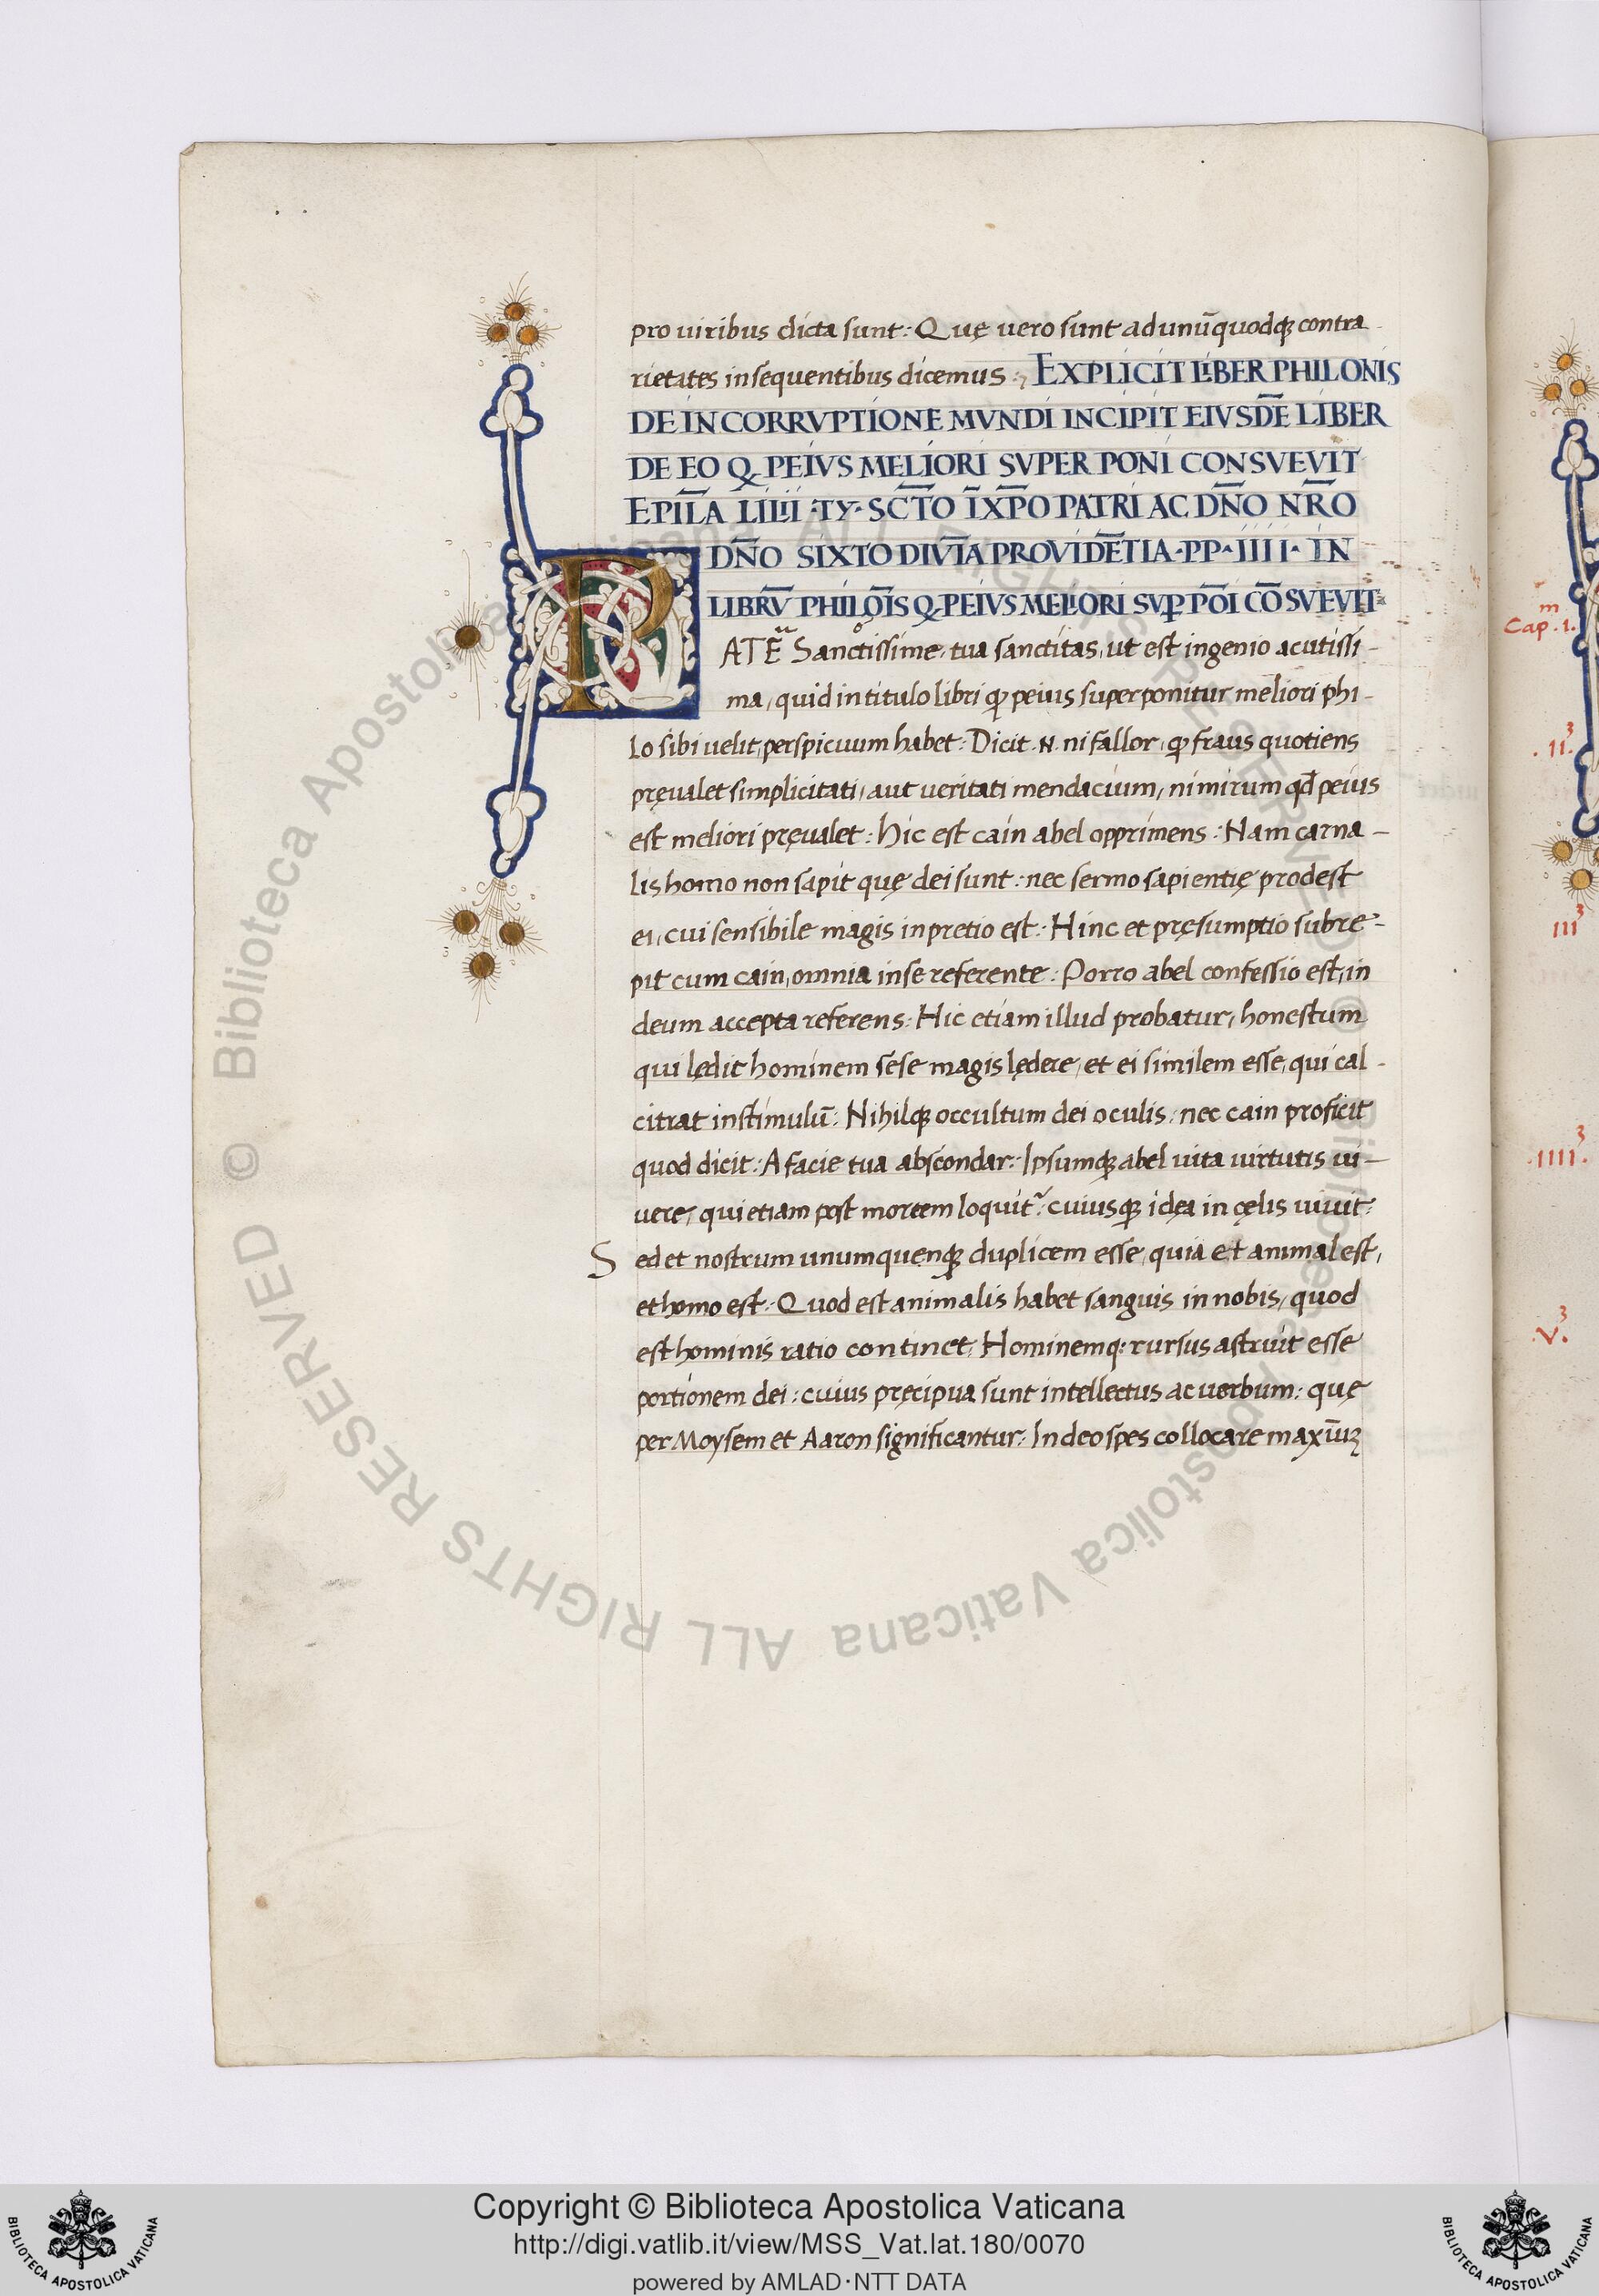 pro viribus dicta sunt: Quę vero sunt adunūquodqꝫ contra
rietates insequentibus dicemus:, EXPLICIT LIBER PHILONIS
DE INCORRVPTIONE MVNDI INCIPIT EIVSDĒ LIBER
DE EO Q PEIVS MELIORI SVPER PONI CONSVEVIT
EPĪLA LILII ·TY· SCTŌ ĪXP̄O PATRI AC DN̄O NR̄O
P DN̄O SIXTO DIVĪA PROVIDĒTIA·PP·IIII· IN
LIBRV̄ PHILŌIS Q PEIVS MELIORI SVꝑ PŌI CŌSVEVIT
ATĒ Sanctissime, tua sanctitas, ut est ingenio acutissi-
ma, quid intitulo libri ꝙ peius superponitur meliori phi-
lo sibi uelit, perspicuum habet: Dicit .N. ni fallor, ꝙ fraus quotiens
pręualet simplicitati, aut veritati mendacium, nimirum qd̄ peius
est meliori pręualet: hic est cain abel opprimens: Nam carna-
lis homo non sapit quę dei sunt: nec sermo sapientię prodest
ei, cui sensibile magis inpretio est: Hinc et pręsumptio subre-
pit cum cain, omnia inse referente: Porro abel confessio est, in
deum accepta referens: Hic etiam illud probatur, honestum
qui lędit hominem sese magis lędere, et ei similem esse, qui cal-
citrat instimulū: Nihilqꝫ occultum dei oculis, nec cain proficit
quod dicit: A facie tua abscondar: Ipsumqꝫ abel uita uirtutis ui-
uere, qui etiam post mortem loquit᷑: cuiusqꝫ idęa in cęlis uiuit:
S ed et nostrum unumquenqꝫ duplicem esse, quia et animal est,
et homo est: Quod est animalis habet sanguis in nobis, quod
est hominis ratio continet, Hominemq: rursus astruit esse
portionem dei: cuius pręcipua sunt intellectus ac uerbum: quę
per Moysem et Aaron significantur: In deo spes collocare maxīūꝫ
Cap. 1.m
.II.3
III3
.IIII.3
.V.3
© Biblioteca Apostolica Vaticana ALL RIGHTS RESERVED © Biblioteca Apostolica Vaticana ALL RIGHTS RESERVED
Copyright © Biblioteca Apostolica Vaticana
http://digi.vatlib.it/view/MSS_Vat.lat.180/0070
powered by AMLAD·NTT DATA
BIBLIOTECA APOSTOLICA VATICANA
BIBLIOTECA APOSTOLICA VATICANA